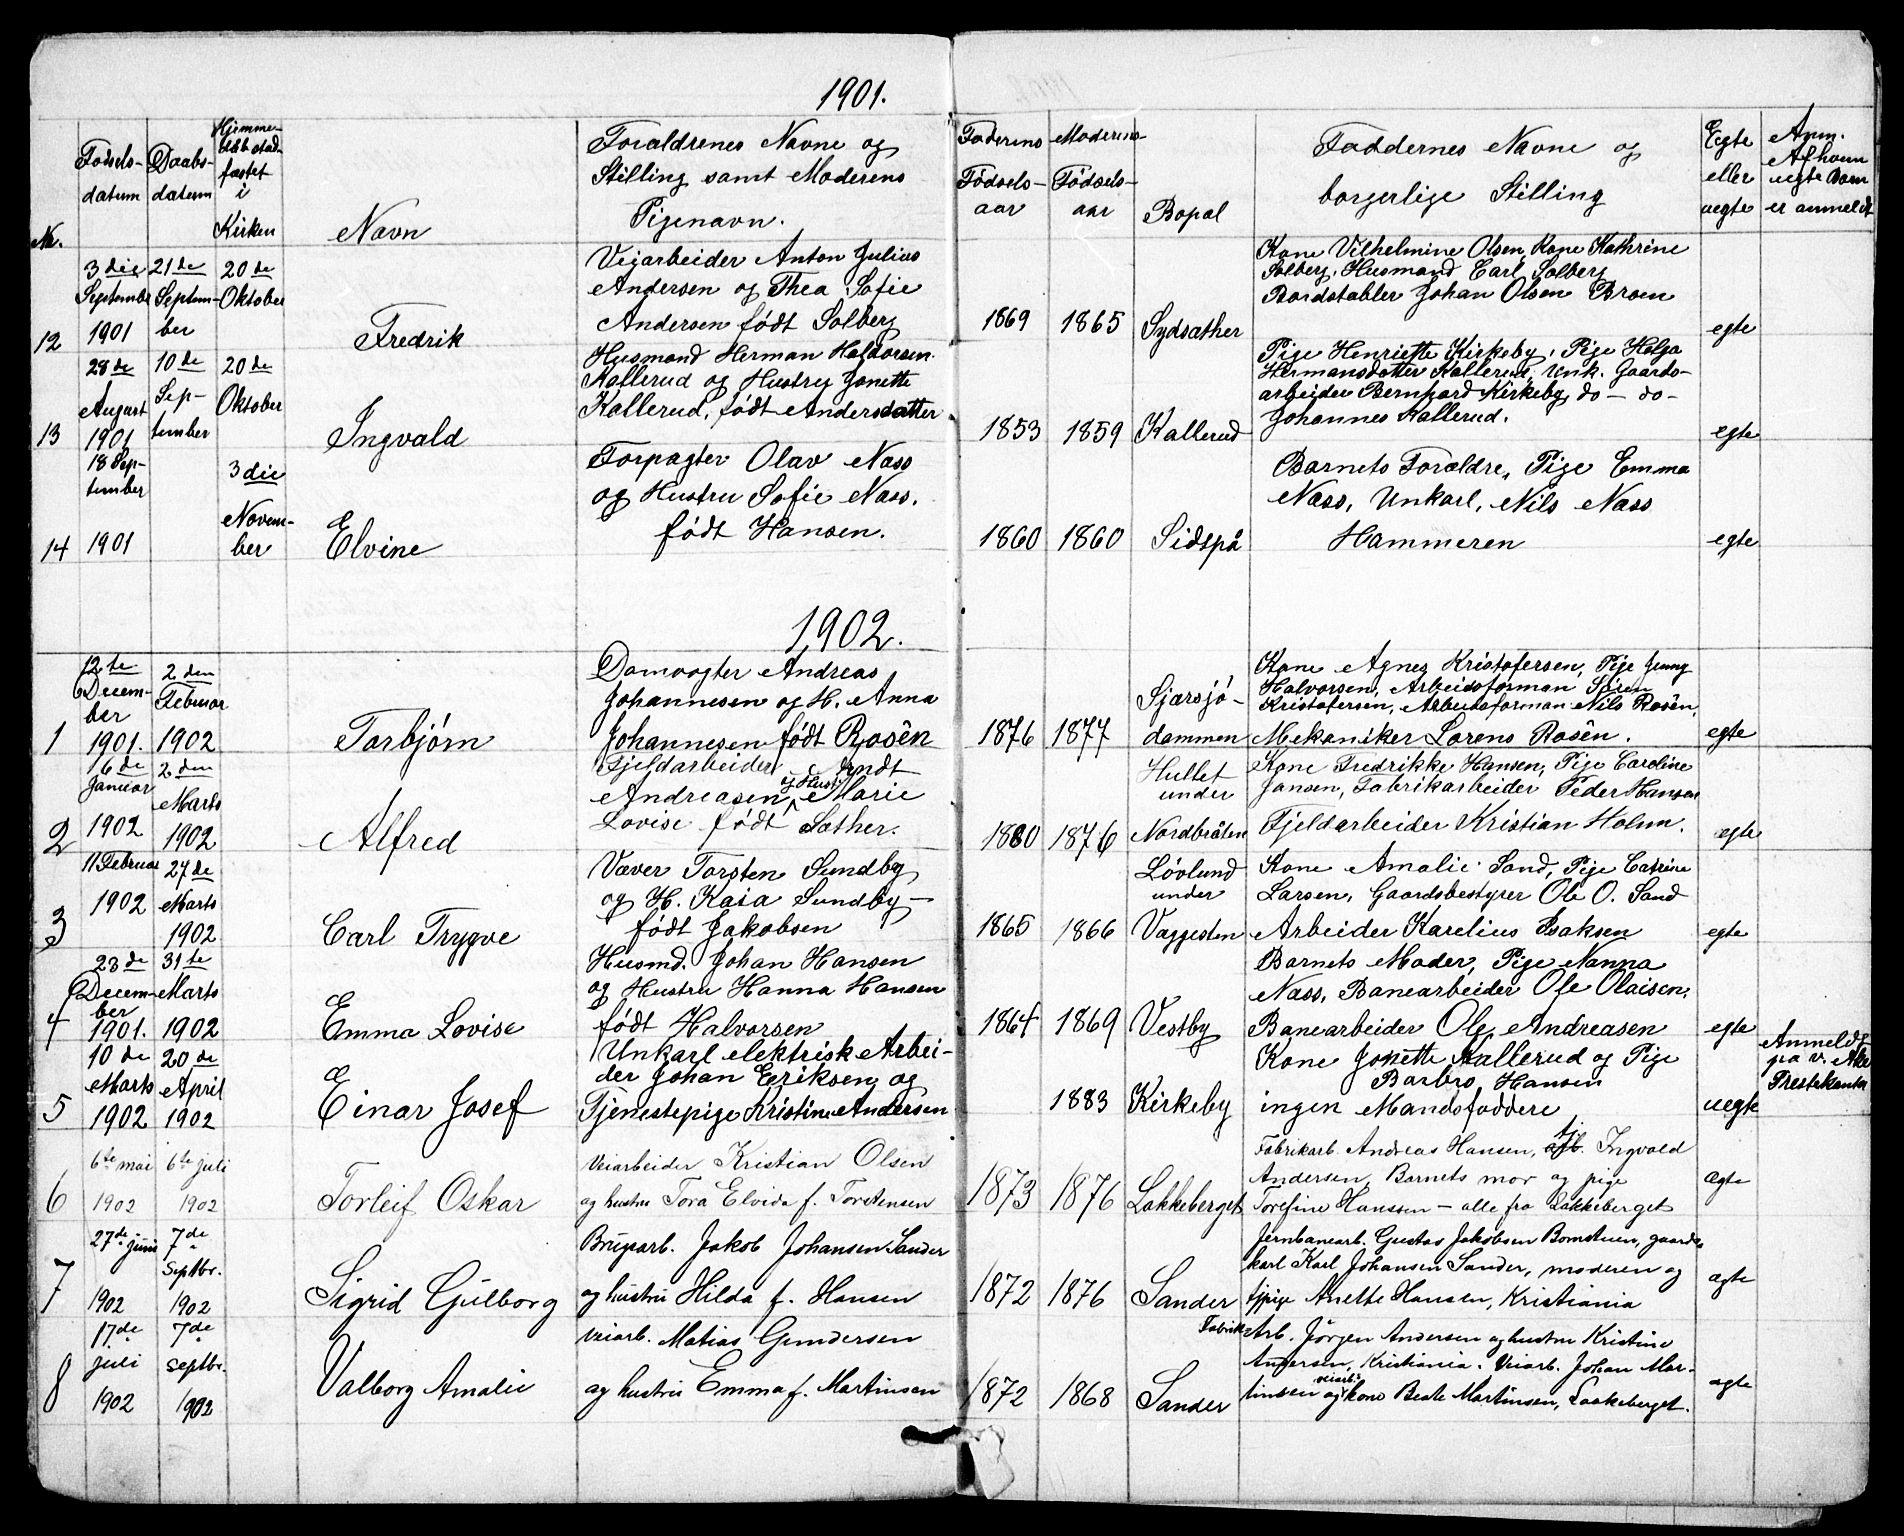 1901.
Nr.
Fødsels-
datum
Daabs-
datum
Hjemme-
døbt stad-
fæstet
i
Kirken
Navn
Forældrenes Navne og
Stilling samt Moderens
Pigenavn.
Faderens
Fødsels-
aar
Moderens
Fødsels-
aar
Bopæl
Faddernes Navne og
borgerlige Stilling
Egte
eller
uegte
Anm.
Af hvem
uegte Barn
er anmeldt
12
3die
September
1901
21de
Septem-
ber
20de
Oktober
Fredrik
Veiarbeider Anton Julius
Andersen og Thea Sofie
Andersen født Solberg
1869
1865
Sydsæther
Kone Vilhelmine Olsen, Kone Kathrine
Solberg, Husmand Carl Solberg
Bordstabler Johan Olsen Braen
egte
13
28de
August
1901
10de
Sep-
tember
20de
Oktober
Ingvald
Husmand Herman Haldorsen
Kallerud og Hustru Jonette
Kallerud, født Andersdatter
1853
1859
Kallerud
Pige Henriette Kirkeby, Pige Helga
Hermansdatter Kallerud, Unk. Gaards-
arbeider Bernhard Kirkeby do - do -
Johannes Kallerud.
egte
14
18 Sep-
tember
1901
3die
Novem-
ber
Elvine
Forpagter Olav Næss
og Hustru Sofie Næss,
født Hansen.
1860
1860
Sidspå
Barnets Forældre, Pige Emma
Næss, Unkarl, Nils Næss
Hammeren
egte
1902.
1
12te
Decem-
ber
1901.
2den
Februar
1902
Torbjørn
Damvogter Andreas
Johannesen og H. Anna
Johannesen født Rosên
1876
1877
Sjærsjö-
dammen
Kone Agnes Kristofersen, Pige Jenny
Halvorsen, Arbeidsforman Sören
Kristofersen, Arbeidsforman Nils Rosên,
Mekaniker Lorens Rosên.
egte
2
6de
Januar
1902
2den
Marts
1902
Alfred
Fjeldarbeider Arndt
Andreasen og Hust. Marie
Lovise født Sæther.
1880
1876
Hullet
under
Nordbråten
Kone Fredrikke Hansen, Pige Caroline
Jansen, Fabrikarbeider Peder Hansen
Fjeldarbeider Kristian Holm.
ægte
3
11 Februar
1902
27de
Marts
1902
Carl Trygve
Væver Torsten Sundby
og H. Kaia Sundby -
født Jakobsen
1865
1866
Lövlund
under
Vaggesten
Kone Amalie Sand, Pige Catrine
Larsen, Gaardsbestyrer Ole O. Sand
Arbeider Karelius Isaksen
egte
4
23de
Decem-
ber
1901.
31te
Marts
1902
Emma Lovise
Husmd. Johan Hansen
og Hustru Hanna Hansen
født Halvorsen
1864
1869
Vestby
Barnets Moder, Pige Nanna
Næss, Banearbeider Ole Olaisen,
Banearbeider Ole Andreasen
egte
5
10de
Marts
1902
20de
April
1902
Einar Josef
Unkarl elektrisk Arbei-
der Johan Eriksen og
Tjenestepige Kristine Andersen
1883
Kirkeby
Kone Jonette Kallerud og Pige
Barbro Hansen
ingen Mandsfaddere
uegte
Anmeldt
på v. Aker
Prestekontor
6
6te mai
1902
6te juli
1902
Torleif Oskar
Veiarbeider Kristian Olsen
og hustru Tora Elvida f. Torstensen
1873
1876
Lakkeberget
Fabrikarb. Andreas Hansen, Ingvald
Andersen, Barnets mor og pige
Torefine Hanssen - alle fra Lakkeberget
ægte
7
27de juni
1902
7de
Septbr.
1902
Sigrid Gulborg
Brugsarb. Jakob Johansen Sander
og hustru Hilda f. Hansen
1872
1876
Sander
Jernbanearb. Gustav Jakobsen Bomstuen, gaards-
karl Karl Johansen Sander, moderen og
tjpige Anette Hansen, Kristiania
ægte
8
17de
juli
1902
7de
septbr.
1902
Valborg Amalie
veiarb. Matias Gundersen
og hustru Emma f. Martinsen
1872
1868
Sander
Fabrik-Arb. Jörgen Andersen og hustru Kristine
Andersen, Kristiania. Veiarb. Johan Mar-
tinsen og veiarb.s kone Beate Martinsen, Laakeberget.
ægte